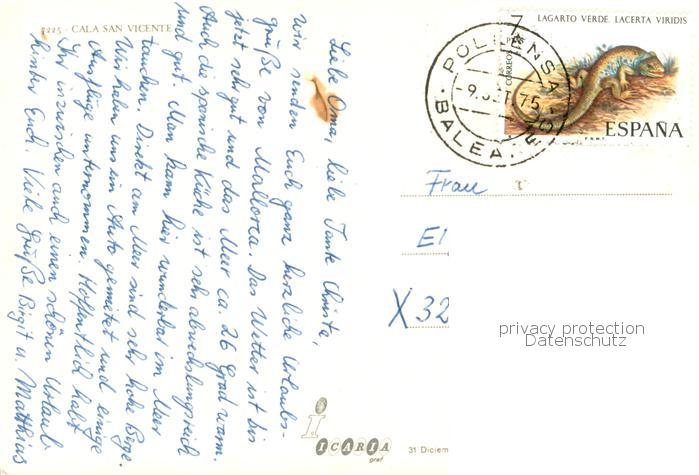 7225 - CALA SAN VICENTE
Liebe Oma, liebe Tante Christe,
wir senden Euch ganz herzliche Urlaubs-
grüße von Mallorca. Das Wetter ist bis
jetzt sehr gut und das Meer ca. 26 Grad warm.
Auch die spanische Küche ist sehr abwechslungsreich
und gut. Man kann hier wunderbar im Meer
tauchen. Direkt am Meer sind sehr hohe Berge.
Wir haben uns ein Auto gemietet und einige
Ausflüge unternommen. Hoffentlich habt
Ihr inzwischen auch einen schönen Urlaub
hinter Euch. Viele Grüße Birgit u. Matthias
7
PTA
CORREOS
LAGARTO VERDE. LACERTA VIRIDIS
ESPAÑA
POLLENSA
75
BALEA
Frau
El
X 32
privacy protection
Datenschutz
i
ICARIA
graf
31 Diciem